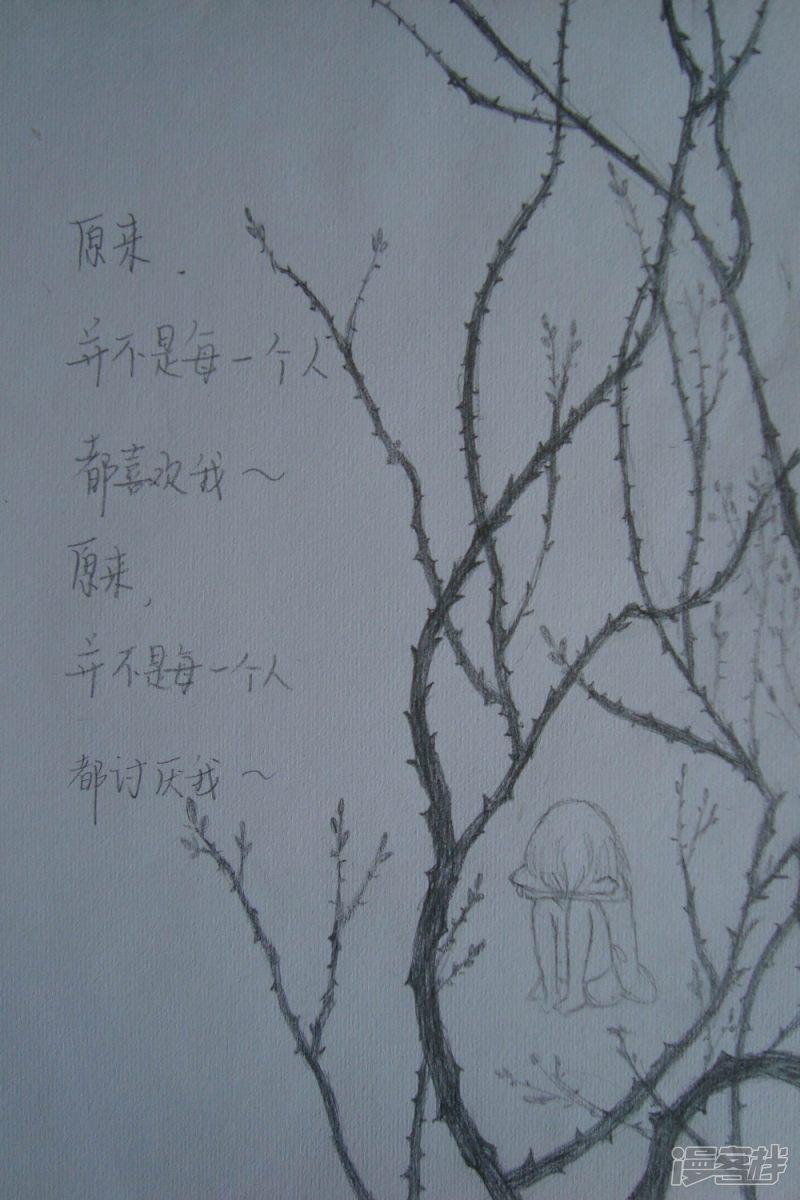 原来.
并不是每一个人
都喜欢我～
原来,
并不是每一个人
都讨厌我～
漫客栈